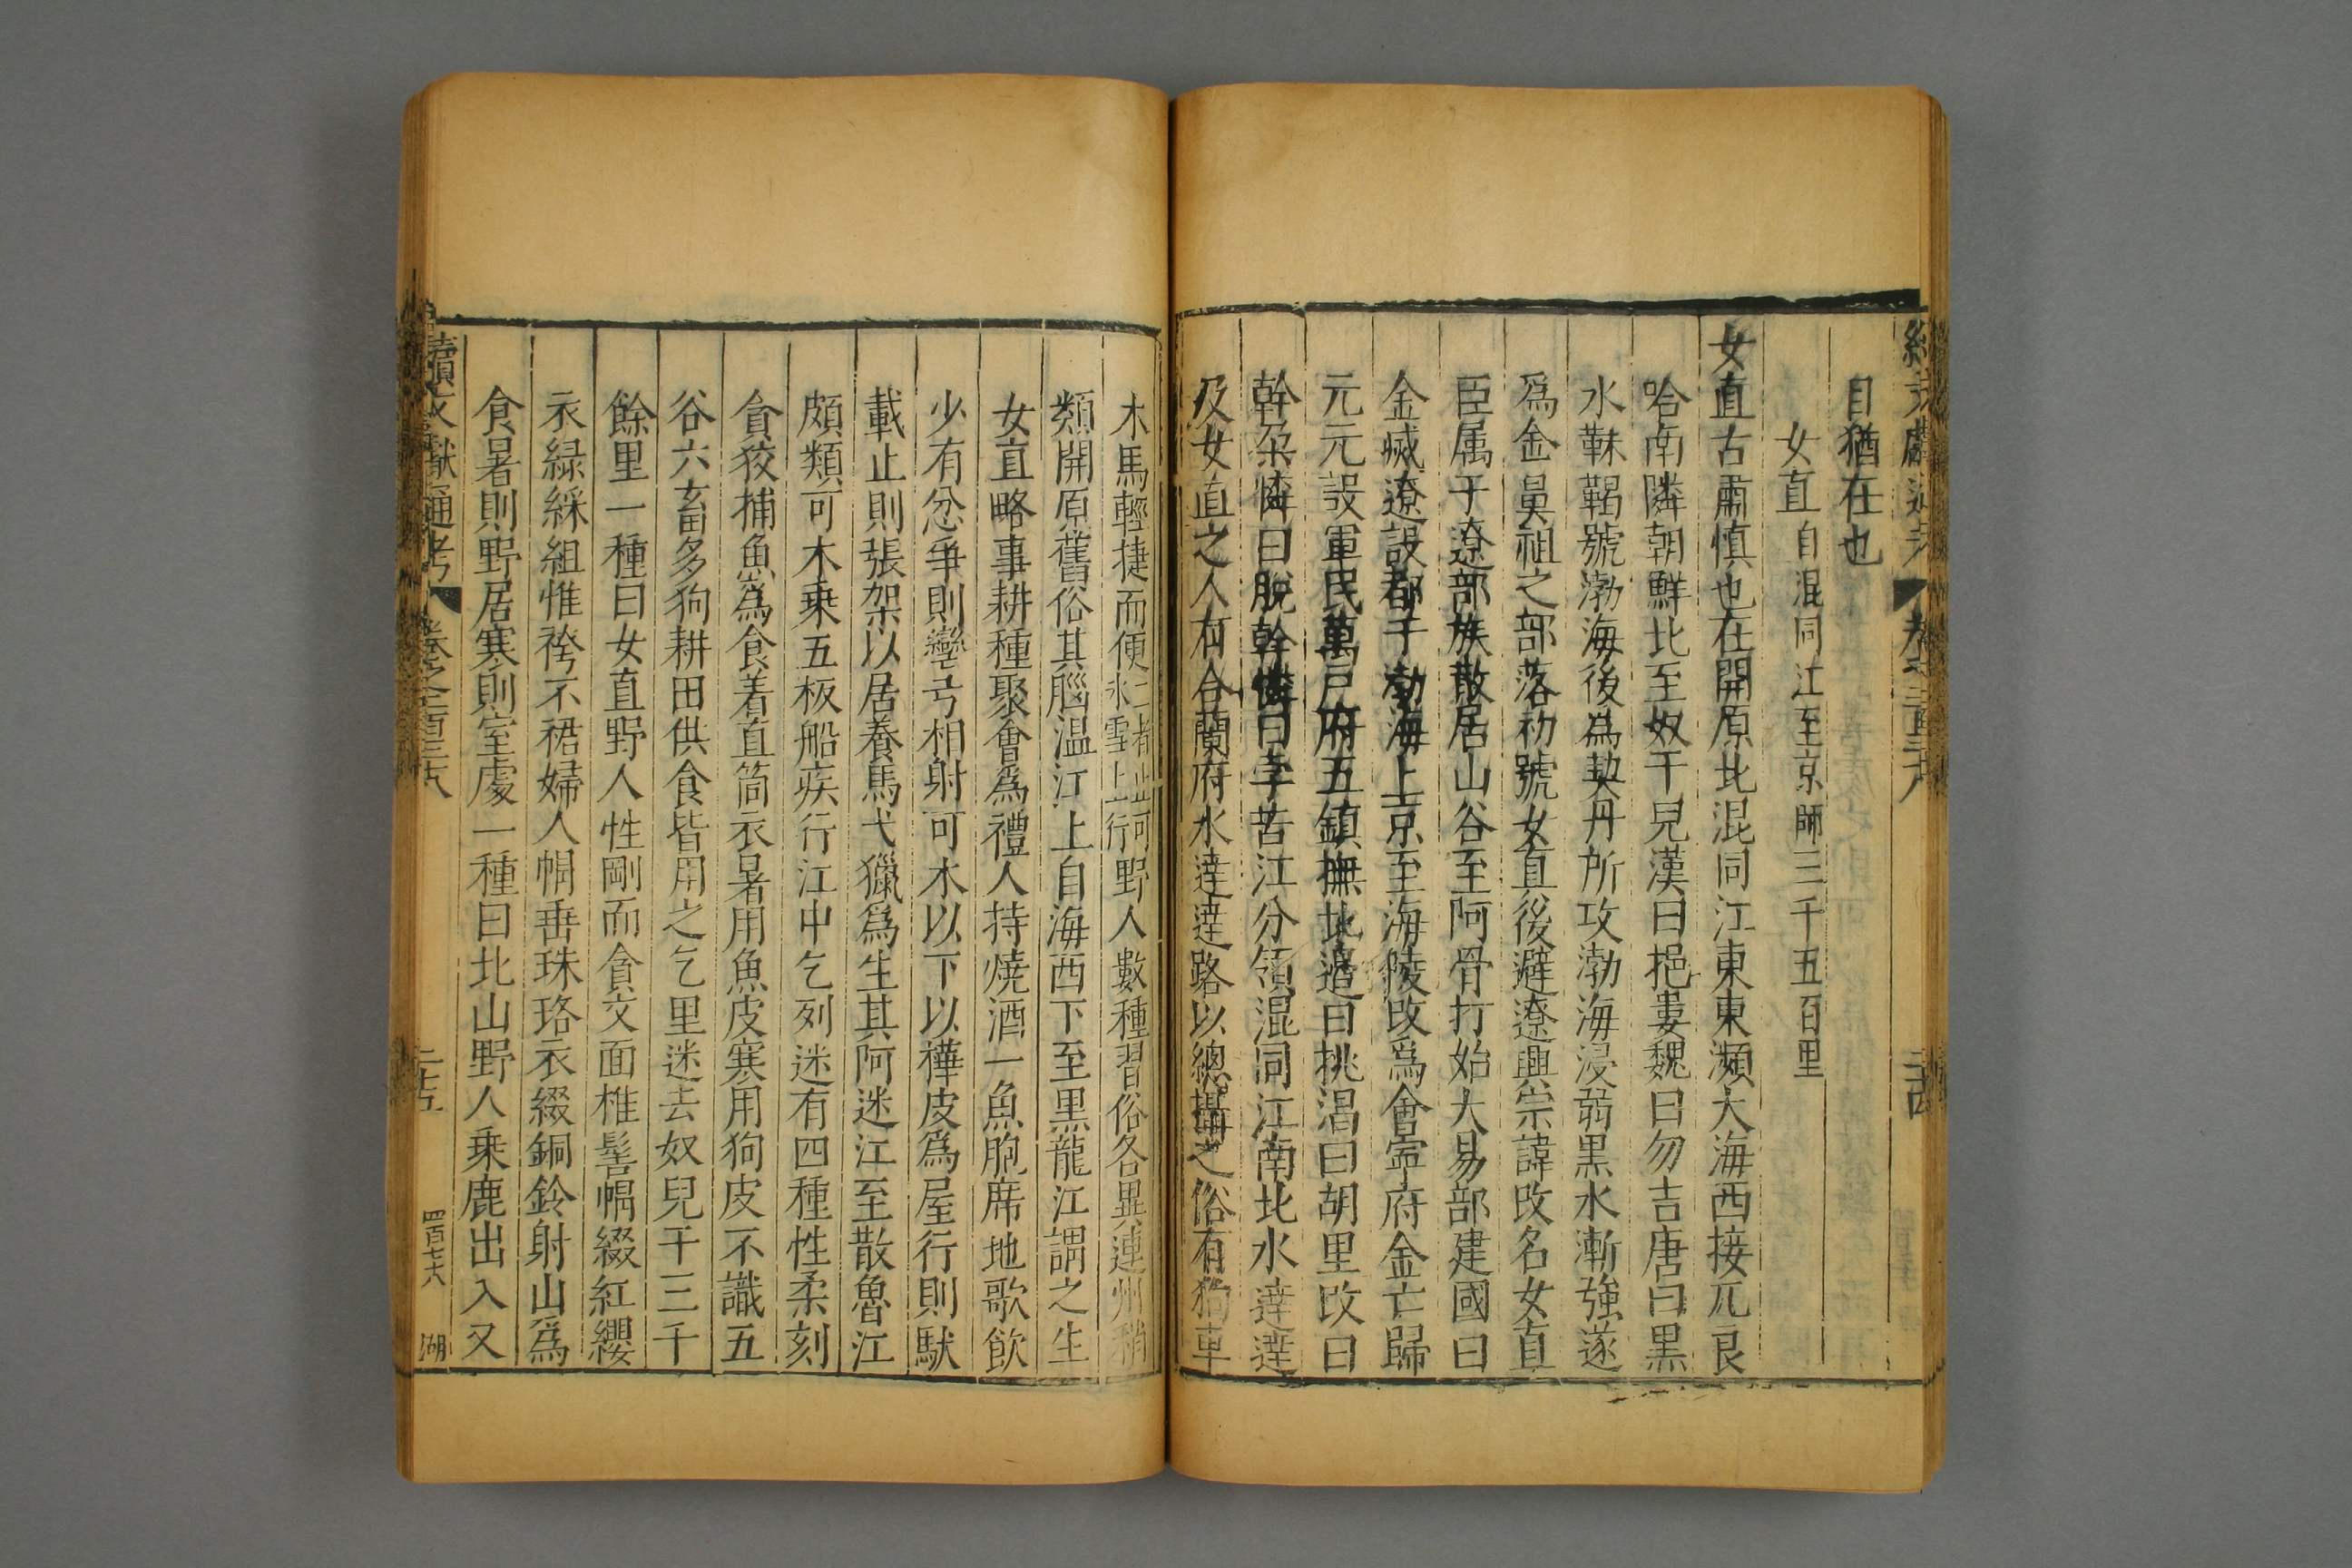 目猶在也
女直自混同江至京師三千五百里
女直古肅慎也在開原北混同江東東瀕大海西接兀良
哈南隣朝鮮北至奴干兒漢曰挹婁魏曰勿吉唐曰黒
水靺鞨號渤海後為契丹所攻渤海浸弱黒水漸強遂
爲金鼻祖之部落初號女直後避遼興崇諱改名女直
臣属于遼部族散居山谷至阿骨打始大易部建國曰
金滅遼設都于渤海上京至海陵改爲會寧府金亡歸
元元設軍民萬户府五鎮撫北邉曰桃温曰胡里改曰
幹朶憐曰脫幹憐曰孛苦江分領混同江南北水達達
及女直之人有合蘭府水達達路以總攝之俗有狗車
木馬輕捷而便二者止可氷雪上行野人數種習俗各異連州稍
類開原舊俗其腦温江上自海西下至黒龍江謂之生
女直略事耕種聚會爲禮人持燒酒一魚胞席地歌飲
少有忿爭則彎弓相射可木以下以樺皮爲屋行則馱
載止則張架以居養馬弋獵爲生其阿迷江至散魯江
頗類可木乗五板船疾行江中乞列迷有四種性柔刻
貪狡捕魚爲食着直筒衣暑用魚皮寒用狗皮不識五
谷六畜多狗耕田供食皆用之乞里迷去奴兒干三千
餘里一種曰女直野人性剛而貪文面椎髻帽綴紅纓
衣緑綵組惟袴不裙婦人帽垂珠珞衣綴銅鈴射山爲
食暑則野居寒則室處一種曰北山野人乗鹿出入又
續文獻通考 卷之二百三十八 二十五 四百七十六 湖